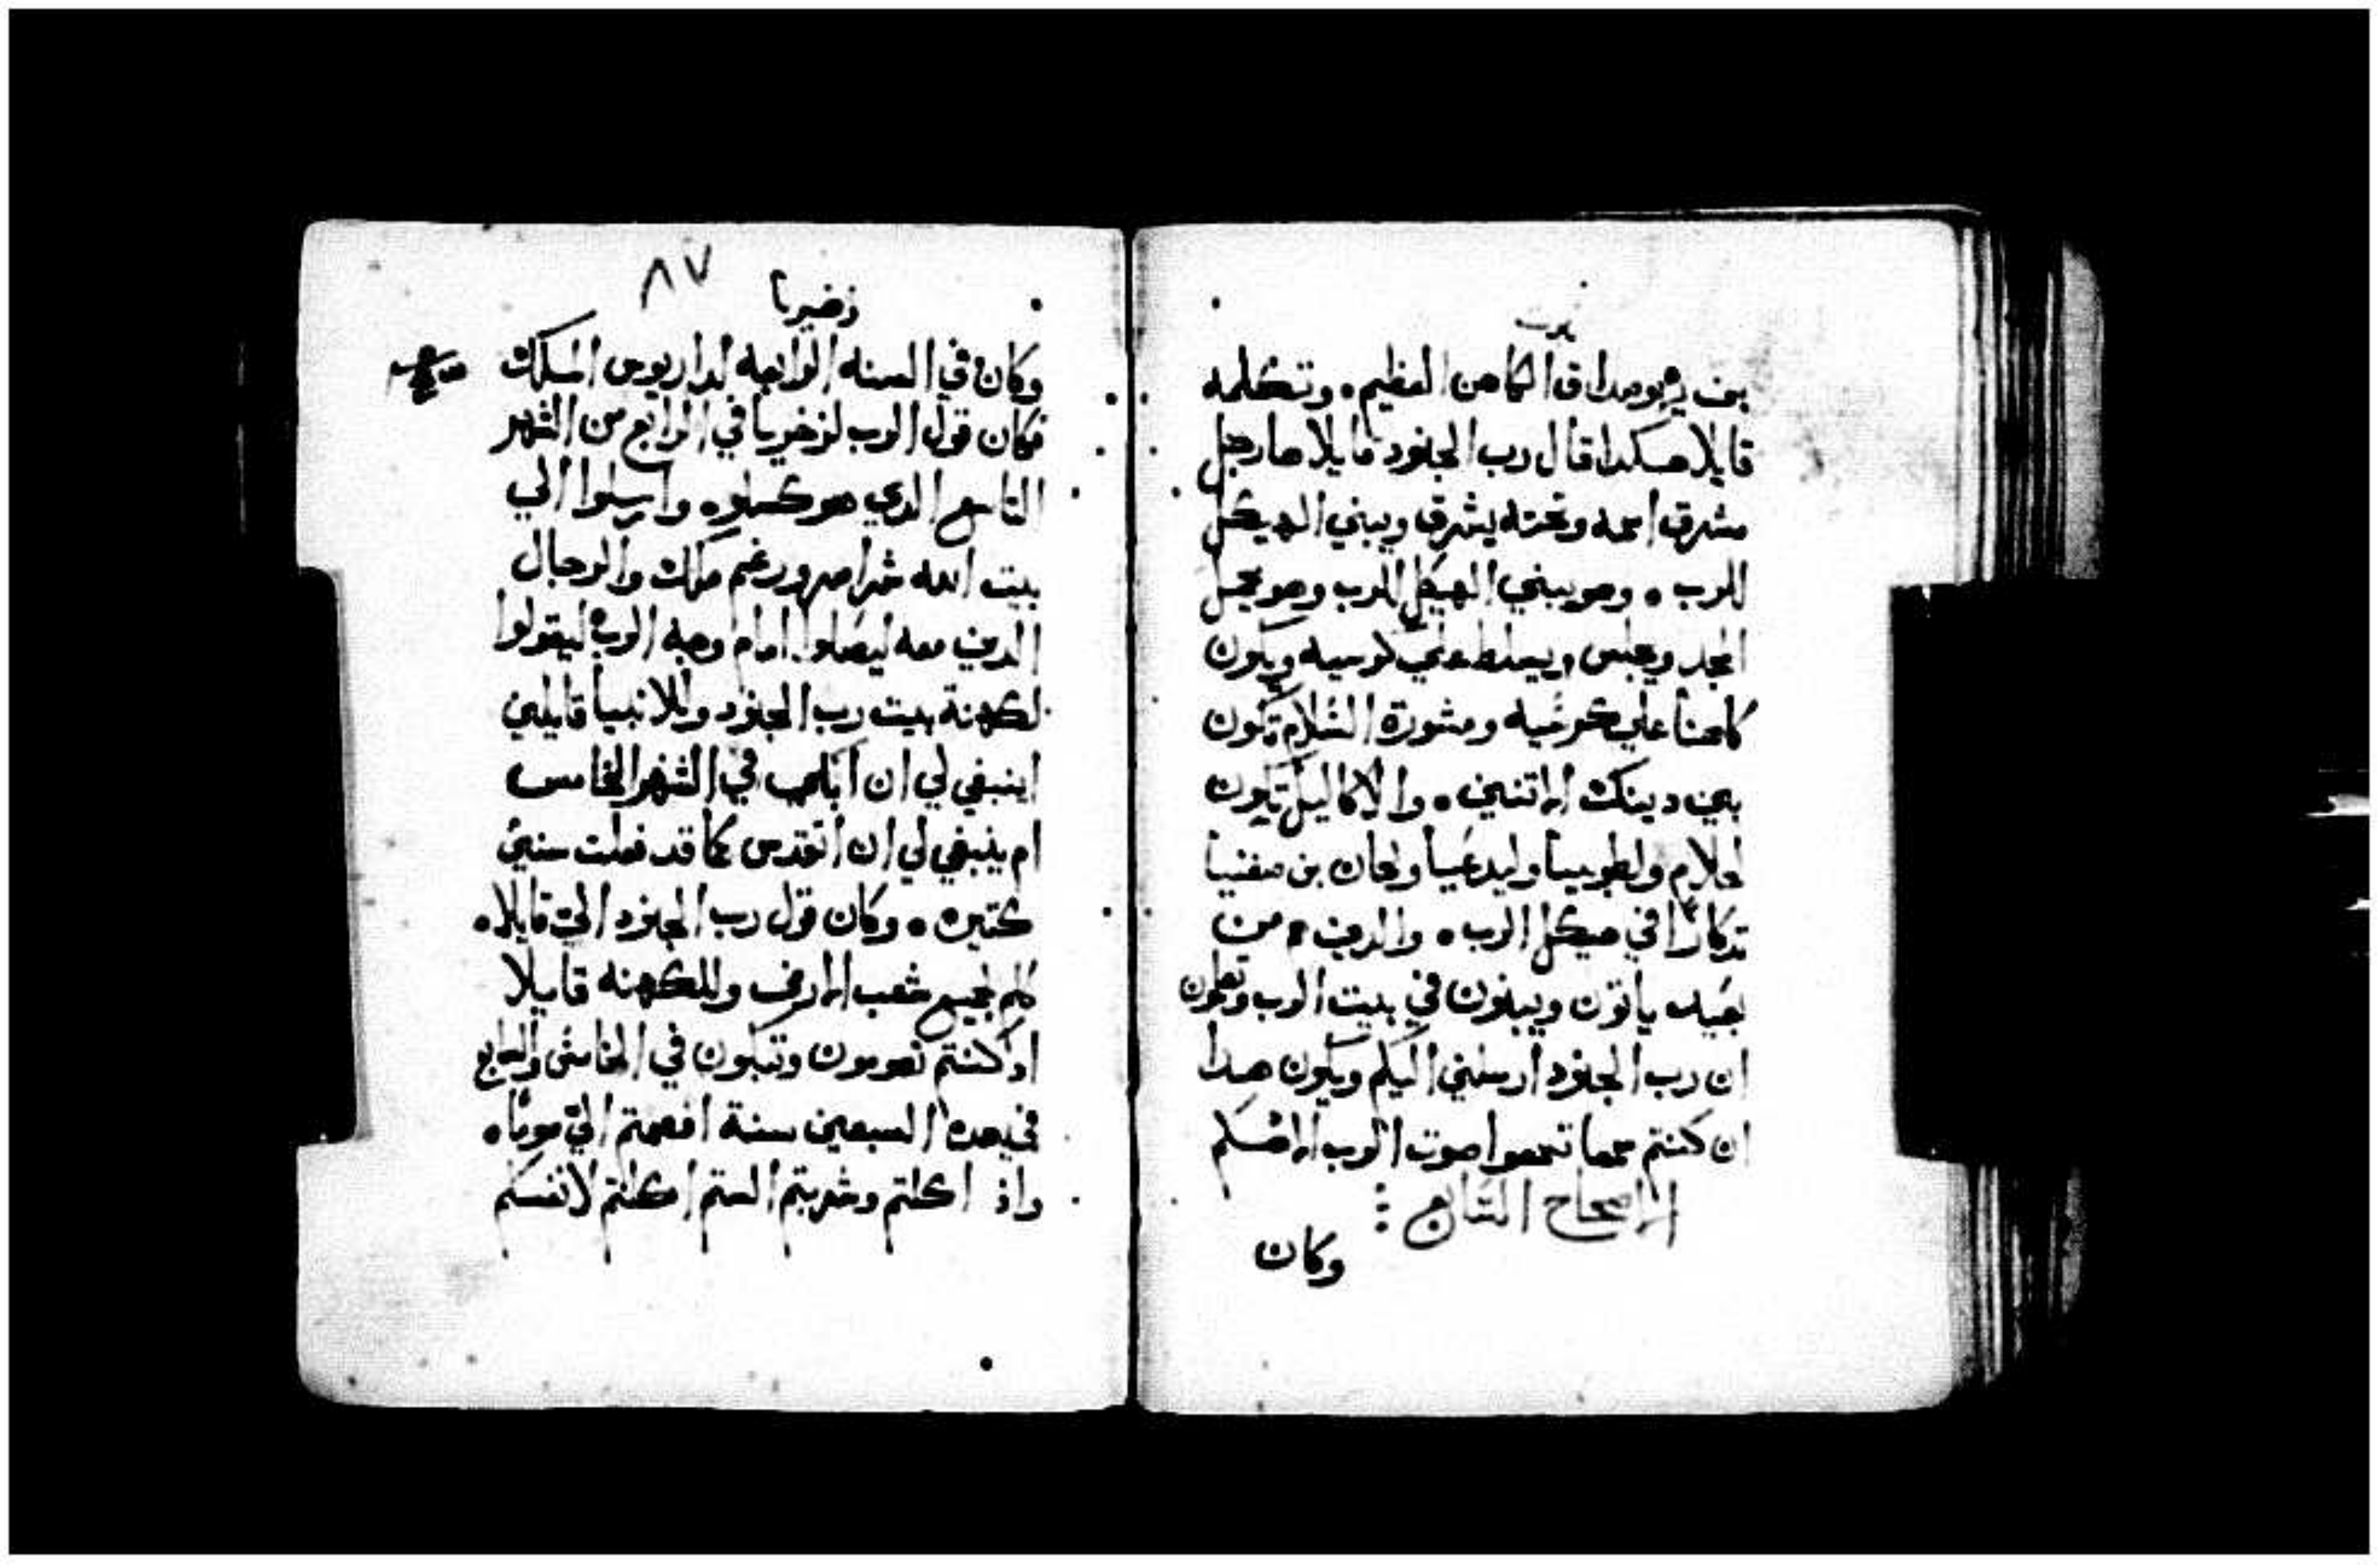 بن يهوصاداق الكاهن العظيم. وتكلمه
قايلا هكدا قال رب الجنود قايلا ها رجل
مشرق اسمه وتحته يشرق ويبني الهيكل
للرب. وهو يبني الهيكل للرب وهو يحمل
المجد ويجلس ويسلط علي كرسيه ويكون
كاهنا علي كرسيه ومشورة السلام تكون
بين دينك الاتنين. والاكاليل تكون
لحلام ولطوبيا وليدعيا ولحان بن صفنيا
تدكارا في هيكل الرب. والدين من
بعيد ياتون ويبنون في بيت الرب وتعلمون
ان رب الجنود ارسلني اليكم ويكون هدا
ان كنتم سمعا تسمعوا صوت الرب الاهكم
الاصحاح السابع
وكان
٨٧
زخريا
وكان في السنه الرابعه لداريوس الملك
فكان قول الرب لزخريا في الرابع من الشهر
التاسع الدي هو كسلوه وارسلوا الي
بيت الله شراصر ورغم ملك والرجال
الدين معه ليصلوا امام وجه الرب ليقولوا
لكهنة بيت رب الجنود وللانبيا قايلين
اينبغي لي ان ابكي في الشهر الخامس
ام ينبغي لي ان اتقدس كما قد فعلت سنين
كتيره. وكان قول رب الجنود الي قايلا.
كلم لجميع شعب الارض وللكهنه قايلا
اد كنتم تصومون وتبكون في الخامس والسابع
في هده السبعين سنة افصمتم الي صوما.
واذ اكلتم وشربتم الستم اكلتم لانفسكم